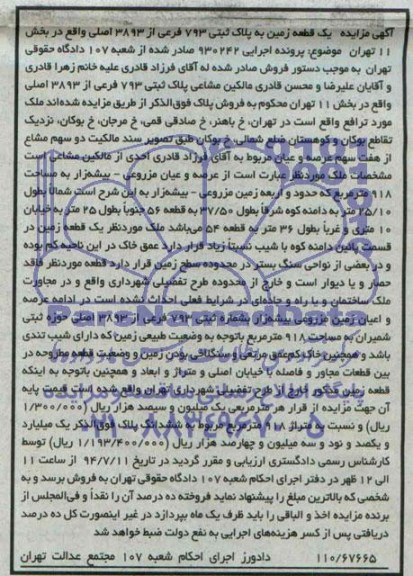 آگهی مزایده یک قطعه زمین به پلاک ثبتی ۷۹۳ فرعی از ۳۸۹۳ اصلی واقع در بخش
۱۱ تهران موضوع: پرونده اجرایی ۹۳۰۲۴۲ صادر شده از شعبه ۱۰۷ دادگاه حقوقی
تهران به موجب دستور فروش صادر شده له آقای فرزاد قادری علیه خانم زهرا قادری
و آقایان علیرضا و محسن قادری مالکین مشاعی پلاک ثبتی ۷۹۳ فرعی از ۳۸۹۳ اصلی
واقع در بخش ۱۱ تهران محکوم به فروش پلاک فوق‌الذکر از طریق مزایده شده‌اند ملک
مورد ترافع واقع است در تهران، خ باهنر، خ صادقی قمی، خ مرجان، خ بوکان، نزدیک
تقاطع بوکان و کوهستان ضلع شمالی خ بوکان طبق تصویر سند مالکیت دو سهم مشاع
از هفت سهم عرصه و عیان مربوط به آقای فرزاد قادری احدی از مالکین مشاعی است
مشخصات ملک موردنظر عبارت است از عرصه و عیان مزروعی - بیشه‌زار به مساحت
۹۱۸ مترمربع که حدود و اربعه زمین مزروعی - بیشه‌زار به این شرح است شمالا بطول
۲۵/۱۰ متر به دامنه کوه شرقاً بطول ۳۷/۵۰ به قطعه ۵۶ جنوباً بطول ۲۵ متر به خیابان
۱۰ متری و غرباً بطول ۳۶ متر به قطعه ۵۴ می‌باشد ملک موردنظر یک قطعه زمین در
قسمت پائین دامنه کوه با شیب نسبتاً زیاد قرار دارد عمق خاک در این ناحیه کم بوده
و در بعضی از نواحی سنگ بستر در محدوده سطح زمین قرار دارد قطعه موردنظر فاقد
حصار و یا دیوار است و خارج از محدوده طرح تفصیلی شهرداری واقع و در مجاورت
ملک ساختمان و یا راه و جاده‌ای در شرایط فعلی احداث نشده است در ادامه عرصه
و اعیان زمین مزروعی بیشه‌زار بشماره ثبتی ۷۹۳ فرعی از ۳۸۹۳ اصلی حوزه ثبتی
شمیران به مساحت ۹۱۸ مترمربع باتوجه به وضعیت طبیعی زمین که دارای شیب تندی
باشد و همچنین خاک کم‌عمق مرتعی و سنگلاخی بودن زمین و وضعیت قطعه مطروحه در
بین قطعات مجاور و فاصله با خیابان اصلی و متراژ و ابعاد و همچنین باتوجه به اینکه
قطعه زمین مذکور خارج از طرح تفصیلی شهرداری تهران واقع شده است قیمت پایه
آن جهت مزایده از قرار هر مترمربعی یک میلیون و سیصد هزار ریال (۱/۳۰۰/۰۰۰
ریال) و نسبت به متراژ ۹۱۸ مترمربع مربوط به ششدانگ پلاک فوق‌الذکر یک میلیارد
و یکصد و نود و سه میلیون و چهارصد هزار ریال (۱/۱۹۳/۴۰۰/۰۰۰ ریال) توسط
کارشناس رسمی دادگستری ارزیابی و مقرر گردید در تاریخ ۹۴/۷/۱۱ از ساعت ۱۱
الی ۱۲ ظهر در دفتر اجرای احکام شعبه ۱۰۷ دادگاه حقوقی تهران به فروش برسد و به
شخصی که بالاترین مبلغ را پیشنهاد نماید فروخته ده درصد آن را نقداً و فی‌المجلس از
برنده مزایده اخذ و الباقی را باید ظرف یک ماه بپردازد در غیر اینصورت کل ده درصد
دریافتی پس از کسر هزینه‌های اجرایی به نفع دولت ضبط خواهد شد
۱۱۰/۶۷۶۶۵ دادورز اجرای احکام شعبه ۱۰۷ مجتمع عدالت تهران